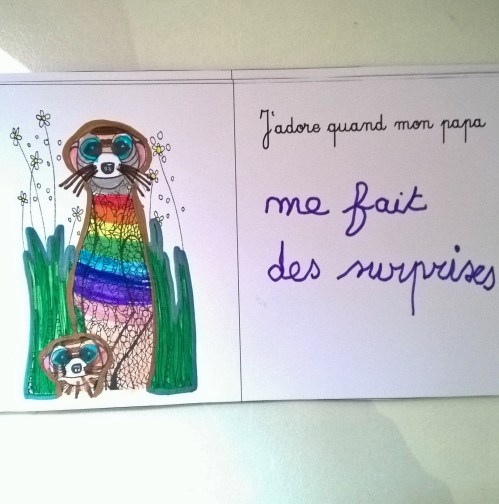 J'adore quand mon papa
me fait
des surprises